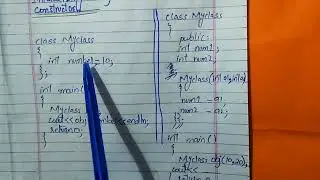 constructor
class Myclass
{
int number=10;
};
int main()
{
Myclass
cout<<obj.number<<endl;
return 0;
class Myclass
{
public:
int num1;
int num2;
Myclass(int a1,int a2)
{
num1 = a1;
num2 = a2;
}
int main()
{
Myclass obj(10,20);
cout<<